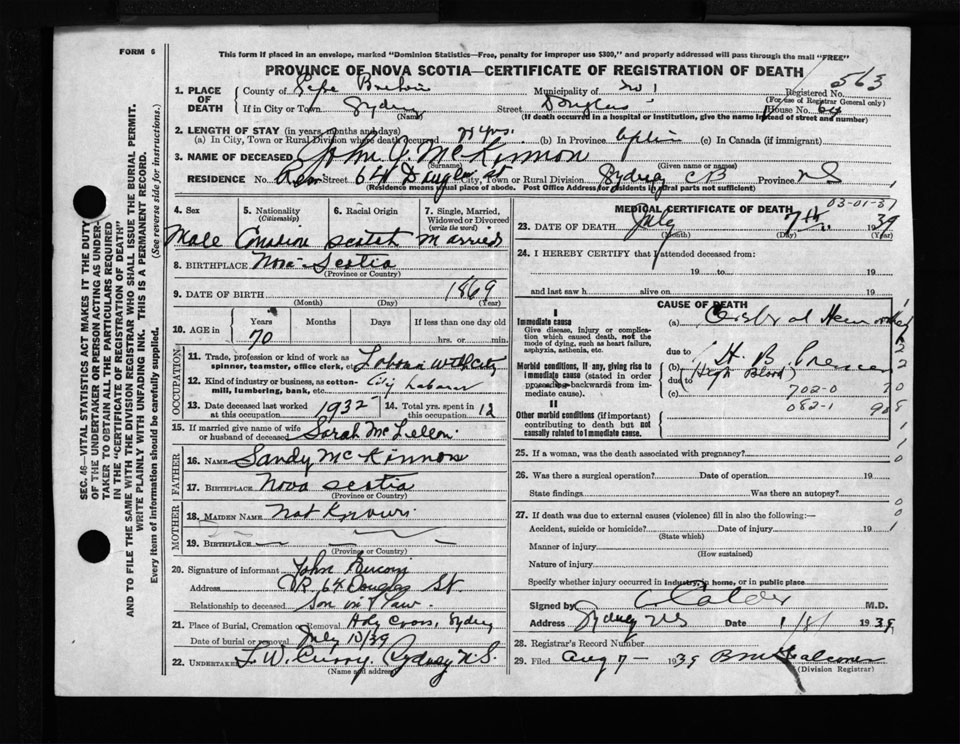 FORM 6
This form if placed in an envelope, marked "Dominion Statistics—Free, penalty for improper use $300," and properly addressed will pass through the mail "FREE"
PROVINCE OF NOVA SCOTIA—CERTIFICATE OF REGISTRATION OF DEATH
563
1. PLACE OF DEATH
County of Cape Breton Municipality of No 1 Registered No.
(For use of Registrar General only)
If in City or Town Sydney Street Douglas House No 64
(Name) (If death occurred in a hospital or institution, give the name instead of street and number)
2. LENGTH OF STAY (in years, months and days)
(a) In City, Town or Rural Division where death occurred yrs. (b) In Province (c) In Canada (if immigrant)
3. NAME OF DECEASED John J. McKinnon
(Surname) (Given name or names)
RESIDENCE No. Street 64 Douglas St City, Town or Rural Division Sydney CB Province NS
(Residence means usual place of abode. Post Office Address for residents in rural parts not sufficient)
4. Sex
5. Nationality (Citizenship)
6. Racial Origin
7. Single, Married, Widowed or Divorced (write the word)
Male Scotch Married
8. BIRTHPLACE Nova Scotia
(Province or Country)
9. DATE OF BIRTH 1869
(Month) (Day) (Year)
10. AGE in Years Months Days If less than one day old
70 hrs. or min.
OCCUPATION
11. Trade, profession or kind of work as spinner, teamster, office clerk, etc.
12. Kind of industry or business, as cotton-mill, lumbering, bank, etc. City Laborer
13. Date deceased last worked at this occupation 1932
14. Total yrs. spent in this occupation 12
15. If married give name of wife or husband of deceased Sarah McLellon
FATHER
16. NAME Sandy McKinnon
17. BIRTHPLACE Nova Scotia
(Province or Country)
MOTHER
18. MAIDEN NAME Not Known
19. BIRTHPLACE
(Province or Country)
20. Signature of informant John
Address 64 Douglas St
Relationship to deceased Son in Law
21. Place of Burial, Cremation or Removal Holy Cross, Sydney
Date of burial or removal July 10/39
22. UNDERTAKER F. W. Curry Sydney N.S.
(Name and address)
MEDICAL CERTIFICATE OF DEATH
03-01-31
23. DATE OF DEATH July 7th 1939
(Month) (Day) (Year)
24. I HEREBY CERTIFY that I attended deceased from:
19 to 19
and last saw h alive on 19
CAUSE OF DEATH
I
Immediate cause
Give disease, injury or complication which caused death, not the mode of dying, such as heart failure, asphyxia, asthenia, etc.
(a) Cerebral Hemorrhage
due to
Morbid conditions, if any, giving rise to immediate cause (stated in order proceeding backwards from immediate cause).
(b) H. B. Pressure
(High Blood)
due to
(c) 702-0
082-1
II
Other morbid conditions (if important) contributing to death but not causally related to immediate cause.
25. If a woman, was the death associated with pregnancy?
26. Was there a surgical operation? Date of operation 19
State findings Was there an autopsy?
27. If death was due to external causes (violence) fill in also the following:—
Accident, suicide or homicide? Date of injury 19
(State which)
Manner of injury
(How sustained)
Nature of injury
Specify whether injury occurred in industry, in home, or in public place
Signed by Calder M.D.
Address Sydney NS Date 1/8/ 1939
28. Registrar's Record Number
29. Filed Aug 7 — 1939
(Division Registrar)
SEC. 46—VITAL STATISTICS ACT MAKES IT THE DUTY
OF THE UNDERTAKER OR PERSON ACTING AS UNDER-
TAKER TO OBTAIN ALL THE PARTICULARS REQUIRED
IN THE "CERTIFICATE OF REGISTRATION OF DEATH"
AND TO FILE THE SAME WITH THE DIVISION REGISTRAR WHO SHALL ISSUE THE BURIAL PERMIT.
WRITE PLAINLY WITH UNFADING INK. THIS IS A PERMANENT RECORD.
Every item of information should be carefully supplied. (See reverse side for instructions.)